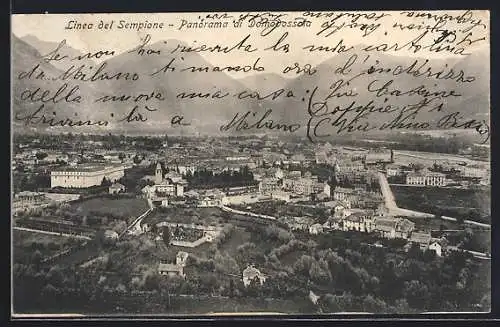 Linea del Sempione - Panorama di Domodossola
Se non hai ricevuta la mia cartolina
da Milano ti mando ora l'indirizzo
della nuova mia casa: Via Cadine
doppie N.
scrivimi là a Milano (Via Nino Bi